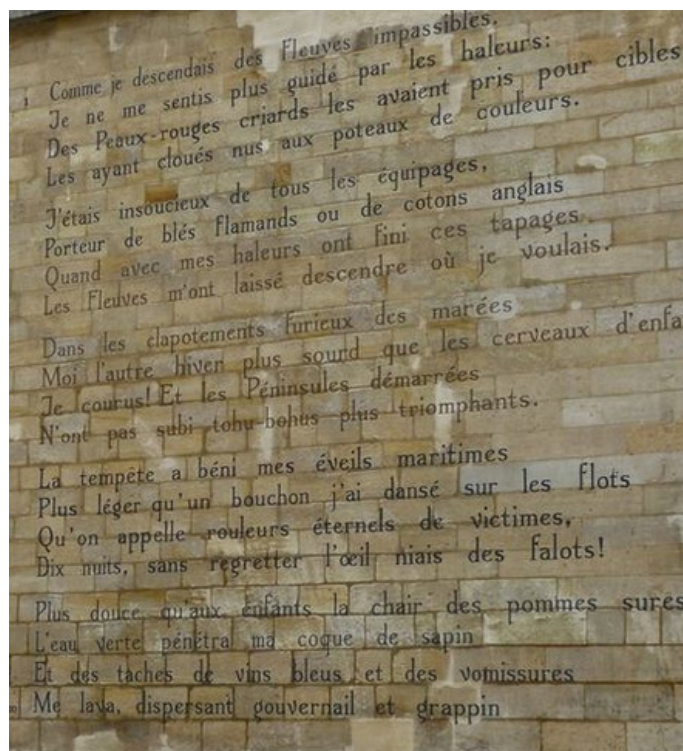 1 Comme je descendais des Fleuves impassibles,
Je ne me sentis plus guidé par les haleurs:
Des Peaux-rouges criards les avaient pris pour cibles
Les ayant cloués nus aux poteaux de couleurs.
J'étais insoucieux de tous les équipages,
Porteur de blés flamands ou de cotons anglais
Quand avec mes haleurs ont fini ces tapages
Les Fleuves m'ont laissé descendre où je voulais.
Dans les clapotements furieux des marées
Moi l'autre hiver plus sourd que les cerveaux d'enfa
Je courus! Et les Péninsules démarrées
N'ont pas subi tohu-bohus plus triomphants.
La tempête a béni mes éveils maritimes
Plus léger qu'un bouchon j'ai dansé sur les flots
Qu'on appelle rouleurs éternels de victimes,
Dix nuits, sans regretter l'œil niais des falots!
Plus douce qu'aux enfants la chair des pommes sures
L'eau verte pénétra ma coque de sapin
Et des taches de vins bleus et des vomissures
Me lava, dispersant gouvernail et grappin